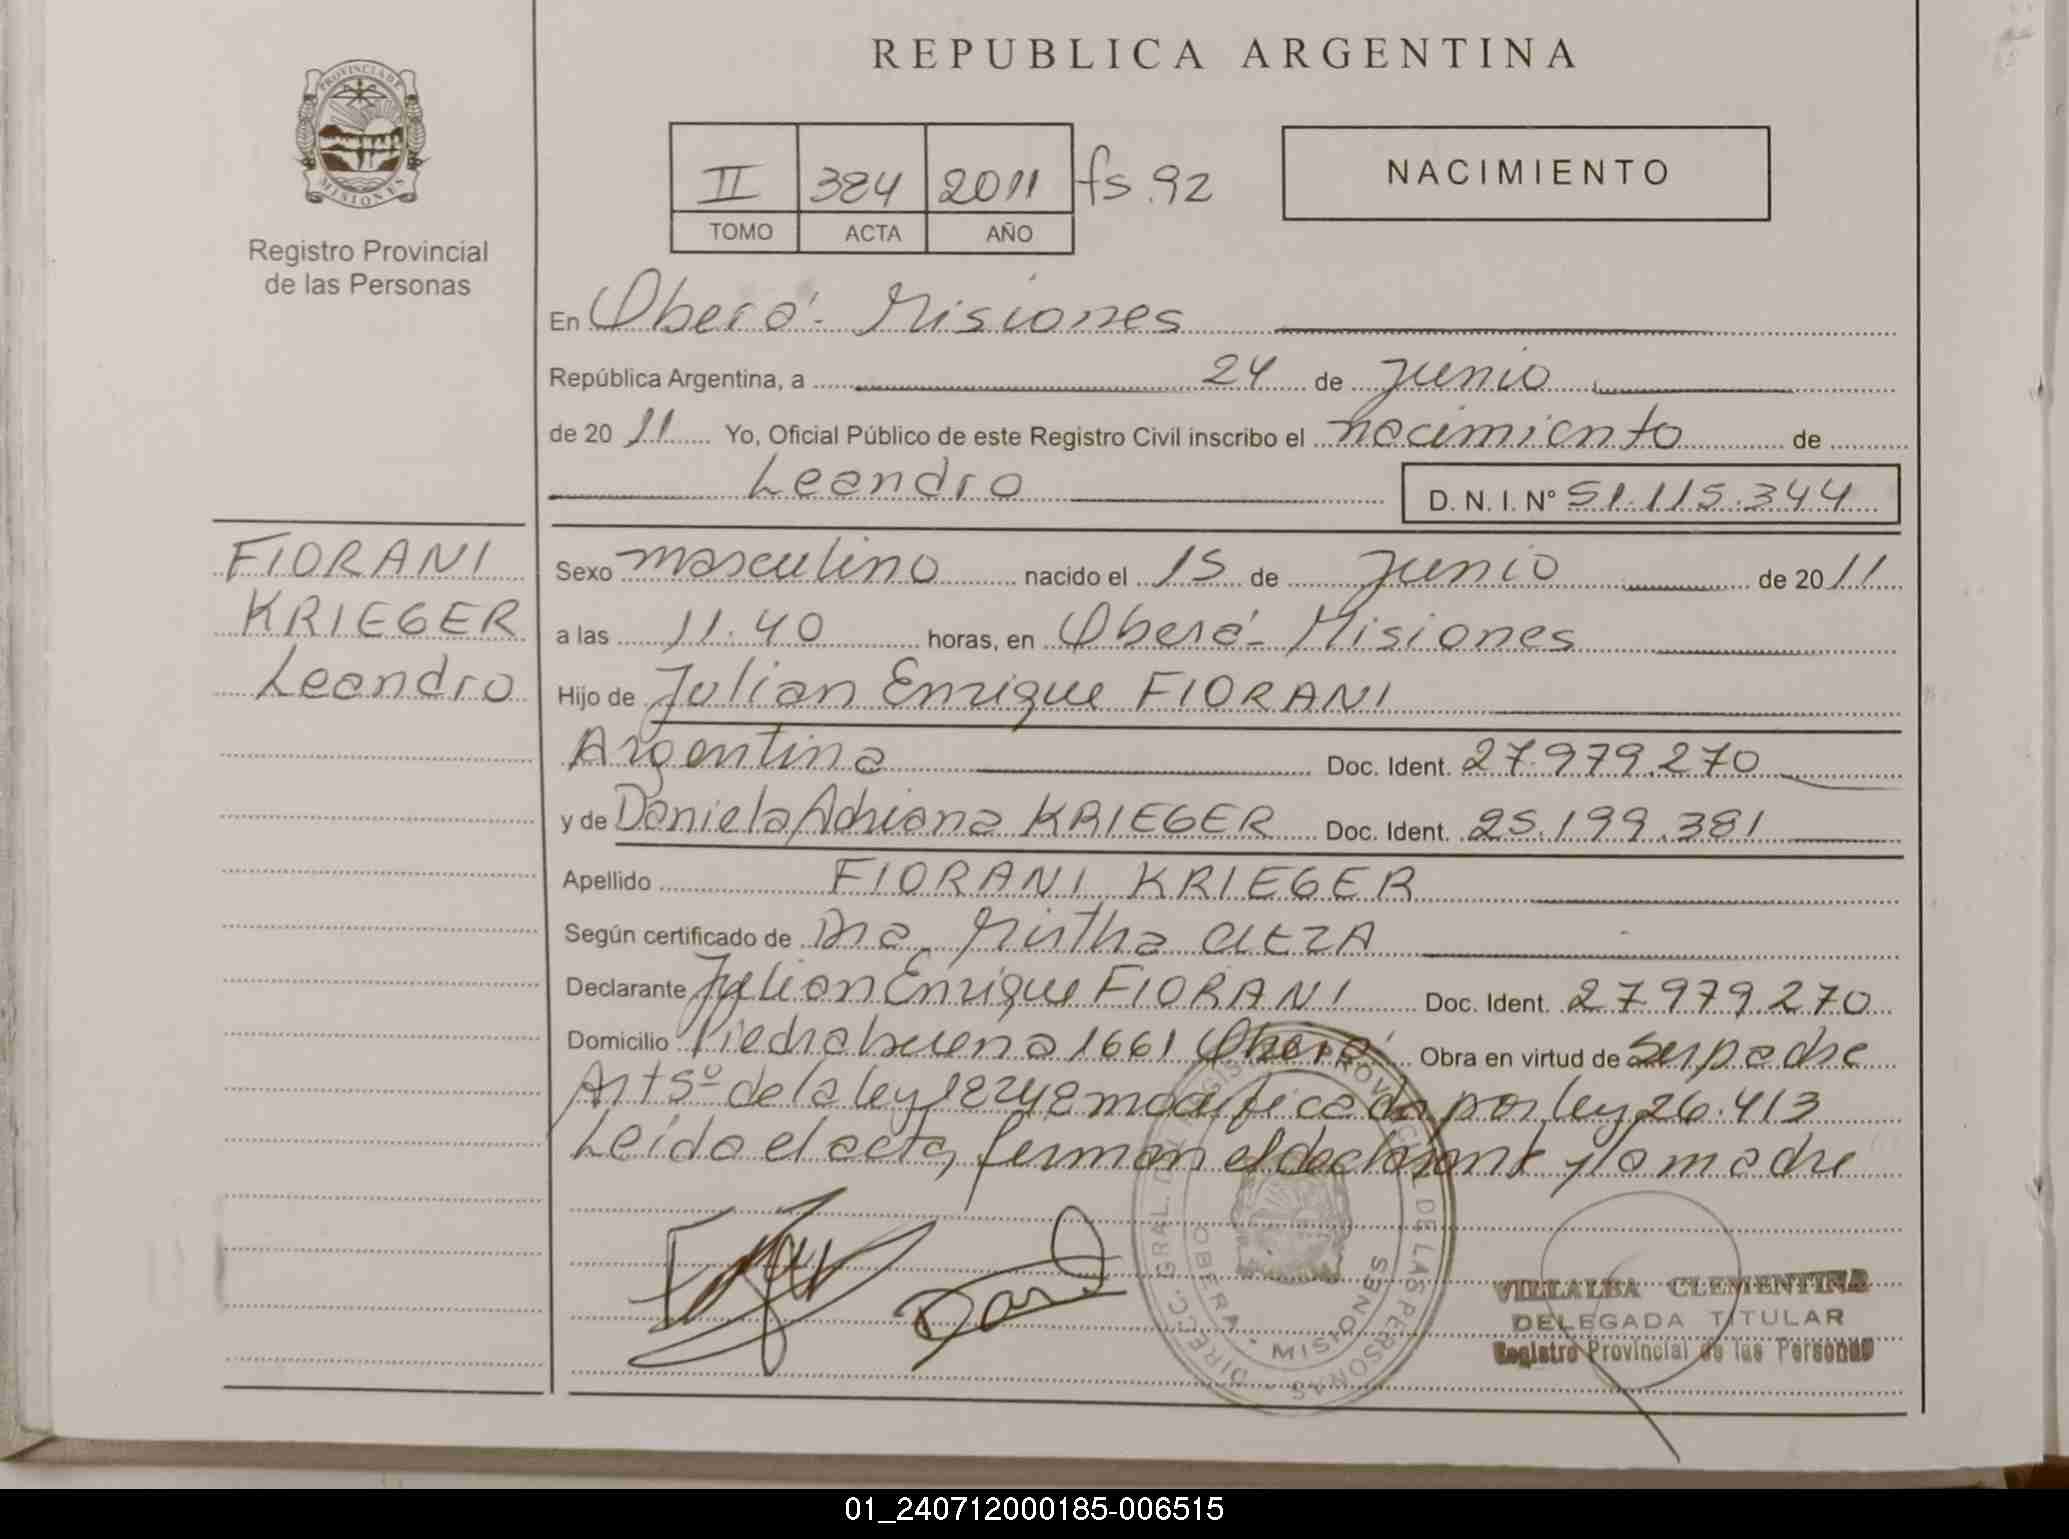 REPUBLICA ARGENTINA
PROVINCIA DE MISIONES
Registro Provincial
de las Personas
II 384 2011 fs. 92
TOMO ACTA AÑO
NACIMIENTO
En Oberá - Misiones
República Argentina, a 24 de Junio
de 2011 Yo, Oficial Público de este Registro Civil inscribo el nacimiento de
Leandro D. N. I. Nº 51.115.344
FIORANI
KRIEGER
Leandro
Sexo masculino nacido el 15 de Junio de 2011
a las 11.40 horas, en Oberá - Misiones
Hijo de Julian Enrique FIORANI
Argentina Doc. Ident. 27.979.270
y de Daniela Adriana KRIEGER Doc. Ident. 25.199.381
Apellido FIORANI KRIEGER
Según certificado de Dra. Mirtha
Declarante Julian Enrique FIORANI Doc. Ident. 27.979.270
Domicilio Piedrabuena 1661 Oberá Obra en virtud de ser padre
Art 5º de la ley 18248 modificada por ley 26.413
Leída el acta, firman el declarante y la madre
DIRECC. GRAL. DEL REGISTRO PROVINCIAL DE LAS PERSONAS
OBERA - MISIONES
VILLALBA CLEMENTINA
DELEGADA TITULAR
Registro Provincial de las Personas
01_240712000185-006515